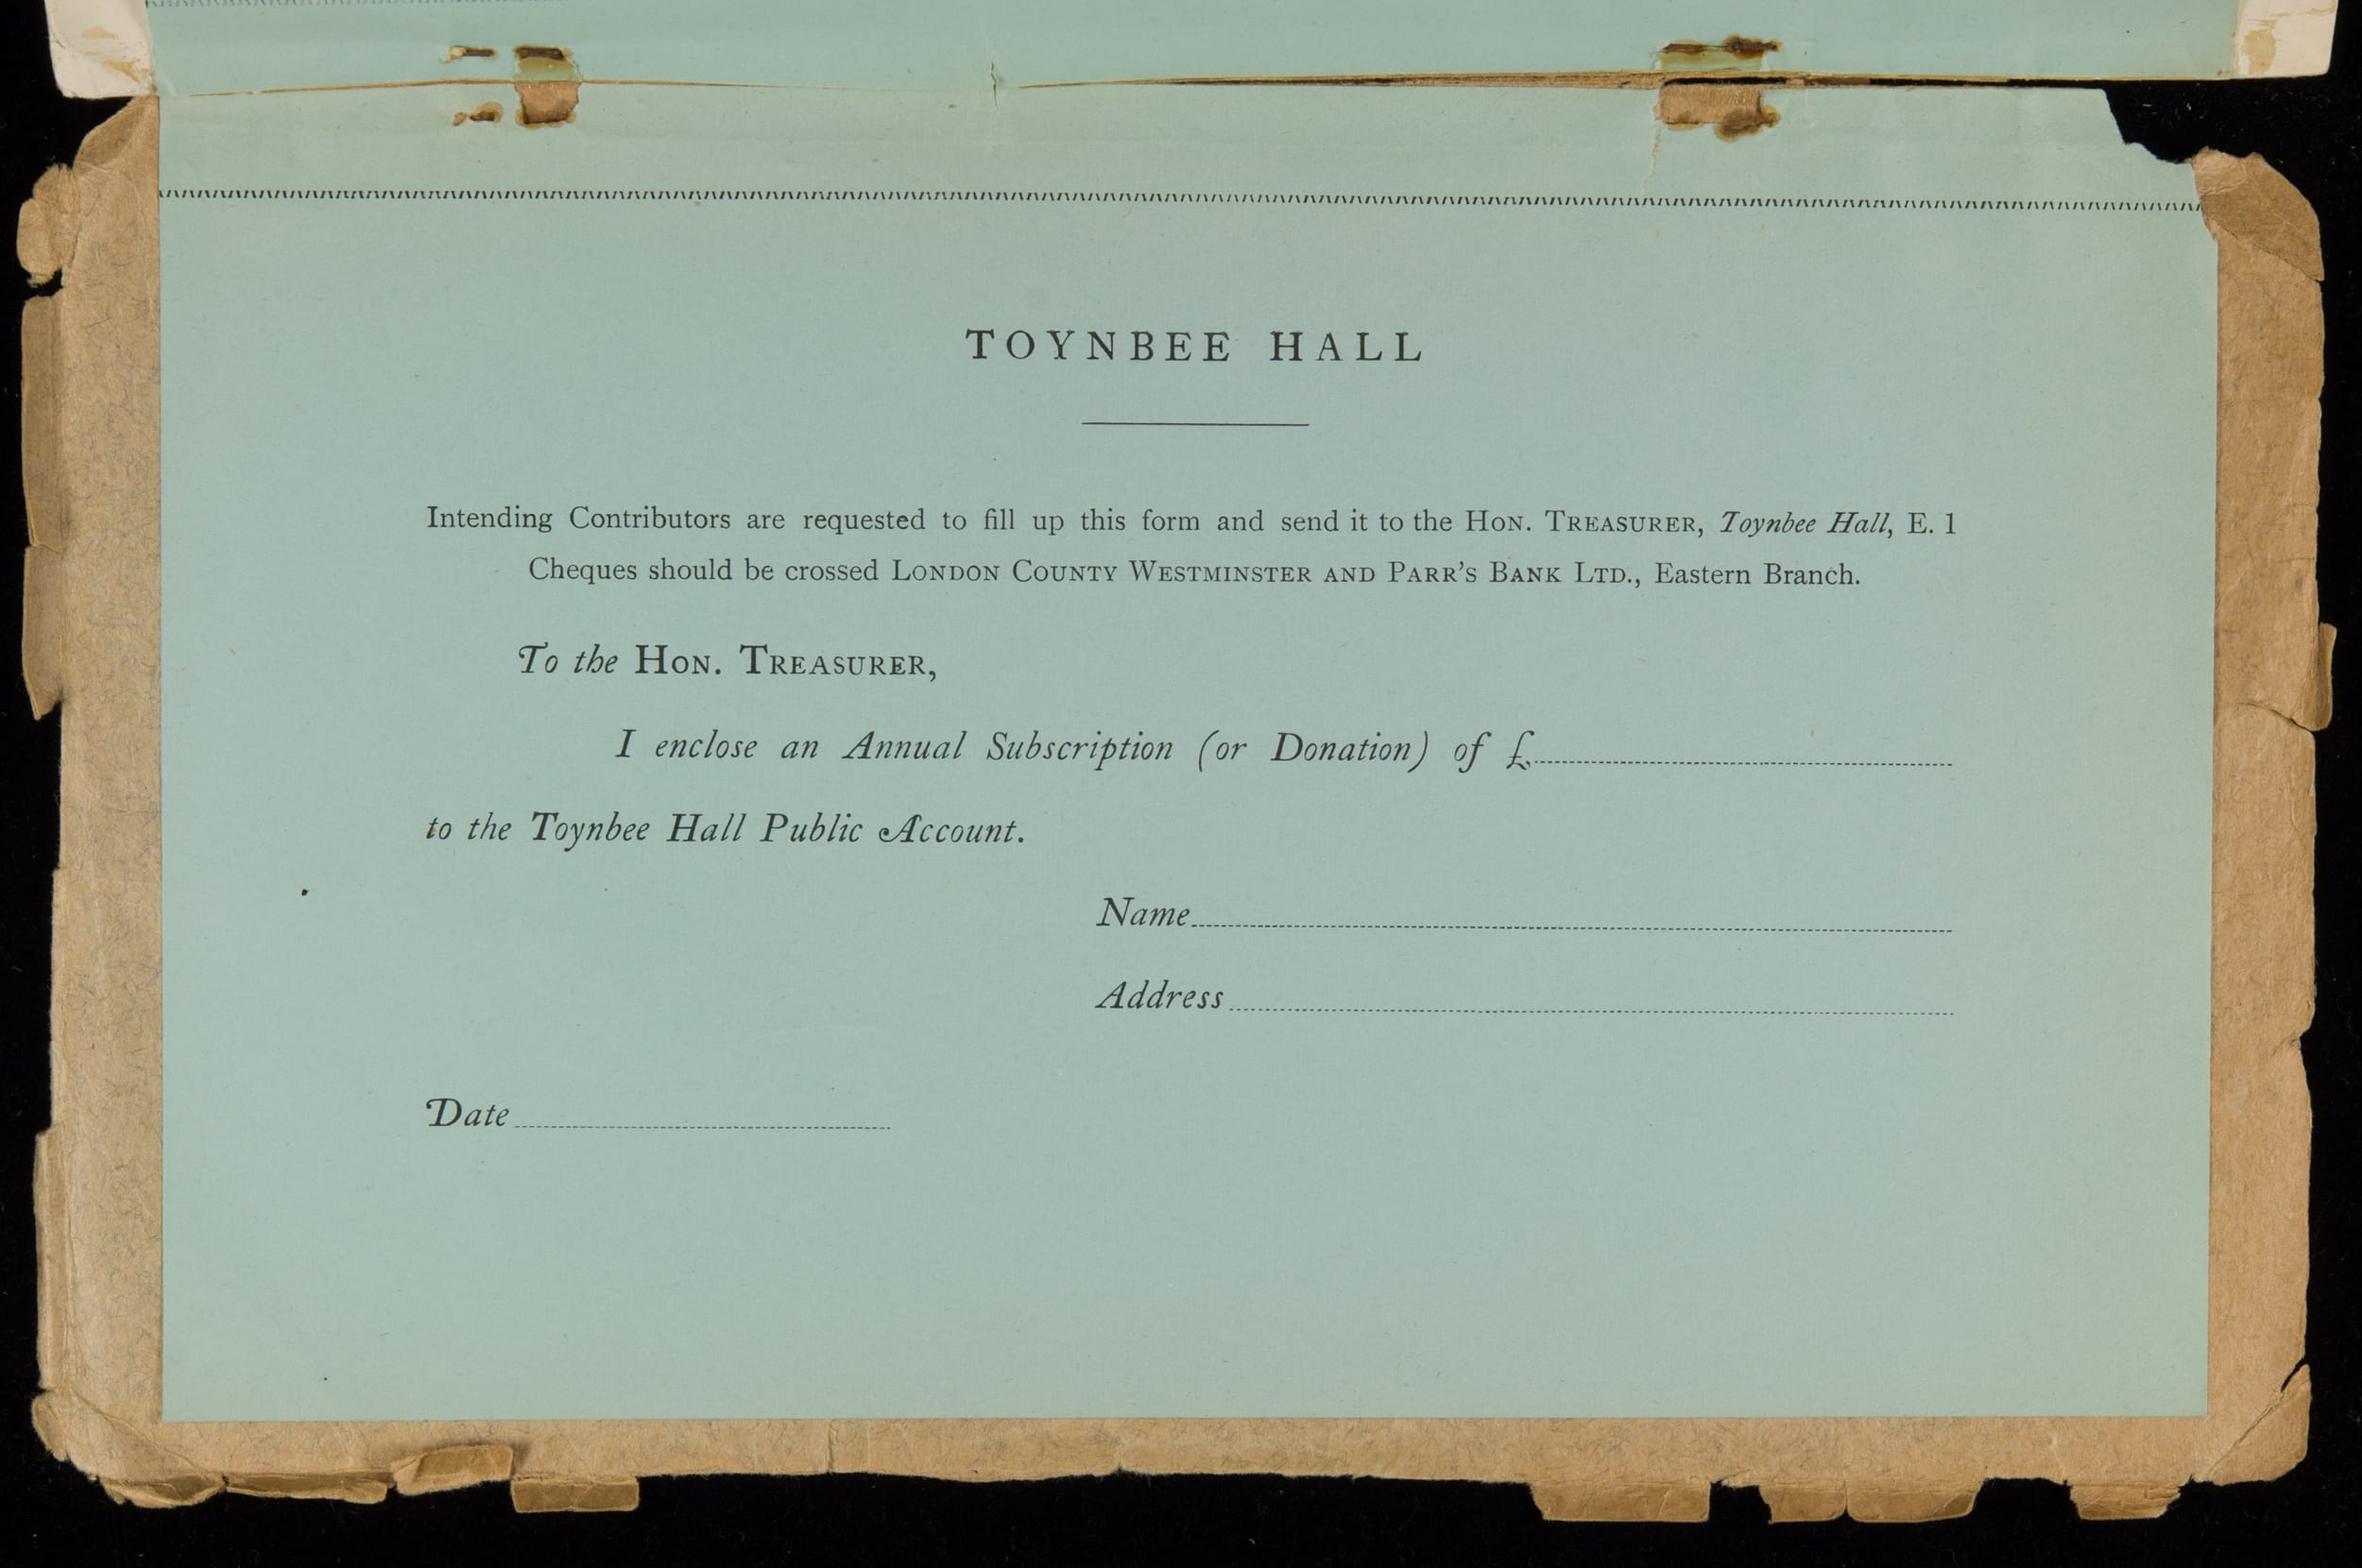 TOYNBEE HALL
Intending Contributors are requested to fill up this form and send it to the HON. TREASURER, Toynbee Hall, E. 1
Cheques should be crossed LONDON COUNTY WESTMINSTER AND PARR'S BANK LTD., Eastern Branch.
To the HON. TREASURER,
I enclose an Annual Subscription (or Donation) of £
to the Toynbee Hall Public Account.
Name
Address
Date